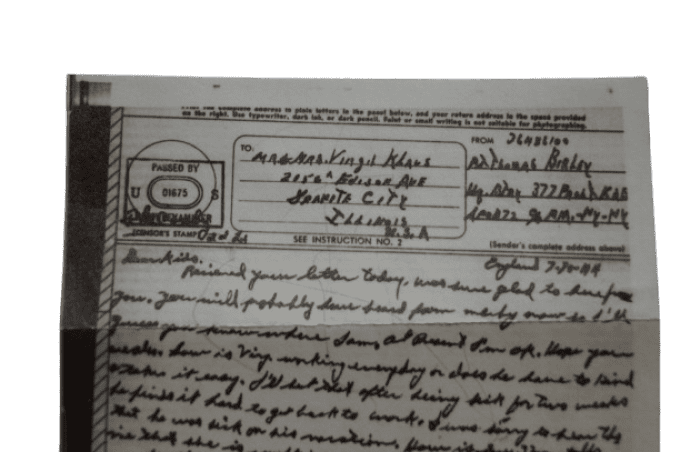 the complete address in plain letters in the panel below, and your return address in the space provided
on the right. Use typewriter, dark ink, or dark pencil. Faint or small writing is not suitable for photographing.
PASSED BY
U 01675 S
ARMY EXAMINER
(CENSOR'S STAMP)
TO:
Mr & Mrs. Virgil Klaus
2156A Edison Ave
Granite City
Illinois
U.S.A
SEE INSTRUCTION NO. 2
FROM
Pvt Thomas
Hq. Btry 377
N.Y. N.Y
(Sender's complete address above)
England 7-30-44
Dear Kids.
Received your letter today, was sure glad to hear from
you. You will probably have heard from me by now so I'll
guess you know where I am, at Present I'm ok. Hope you
How is Virg. working everyday or does he have to kind
a take it easy. I'll bet that after being sick for two weeks
he finds it hard to get back to work. I was sorry to hear
that he was sick on his vacation. How is
me that she is